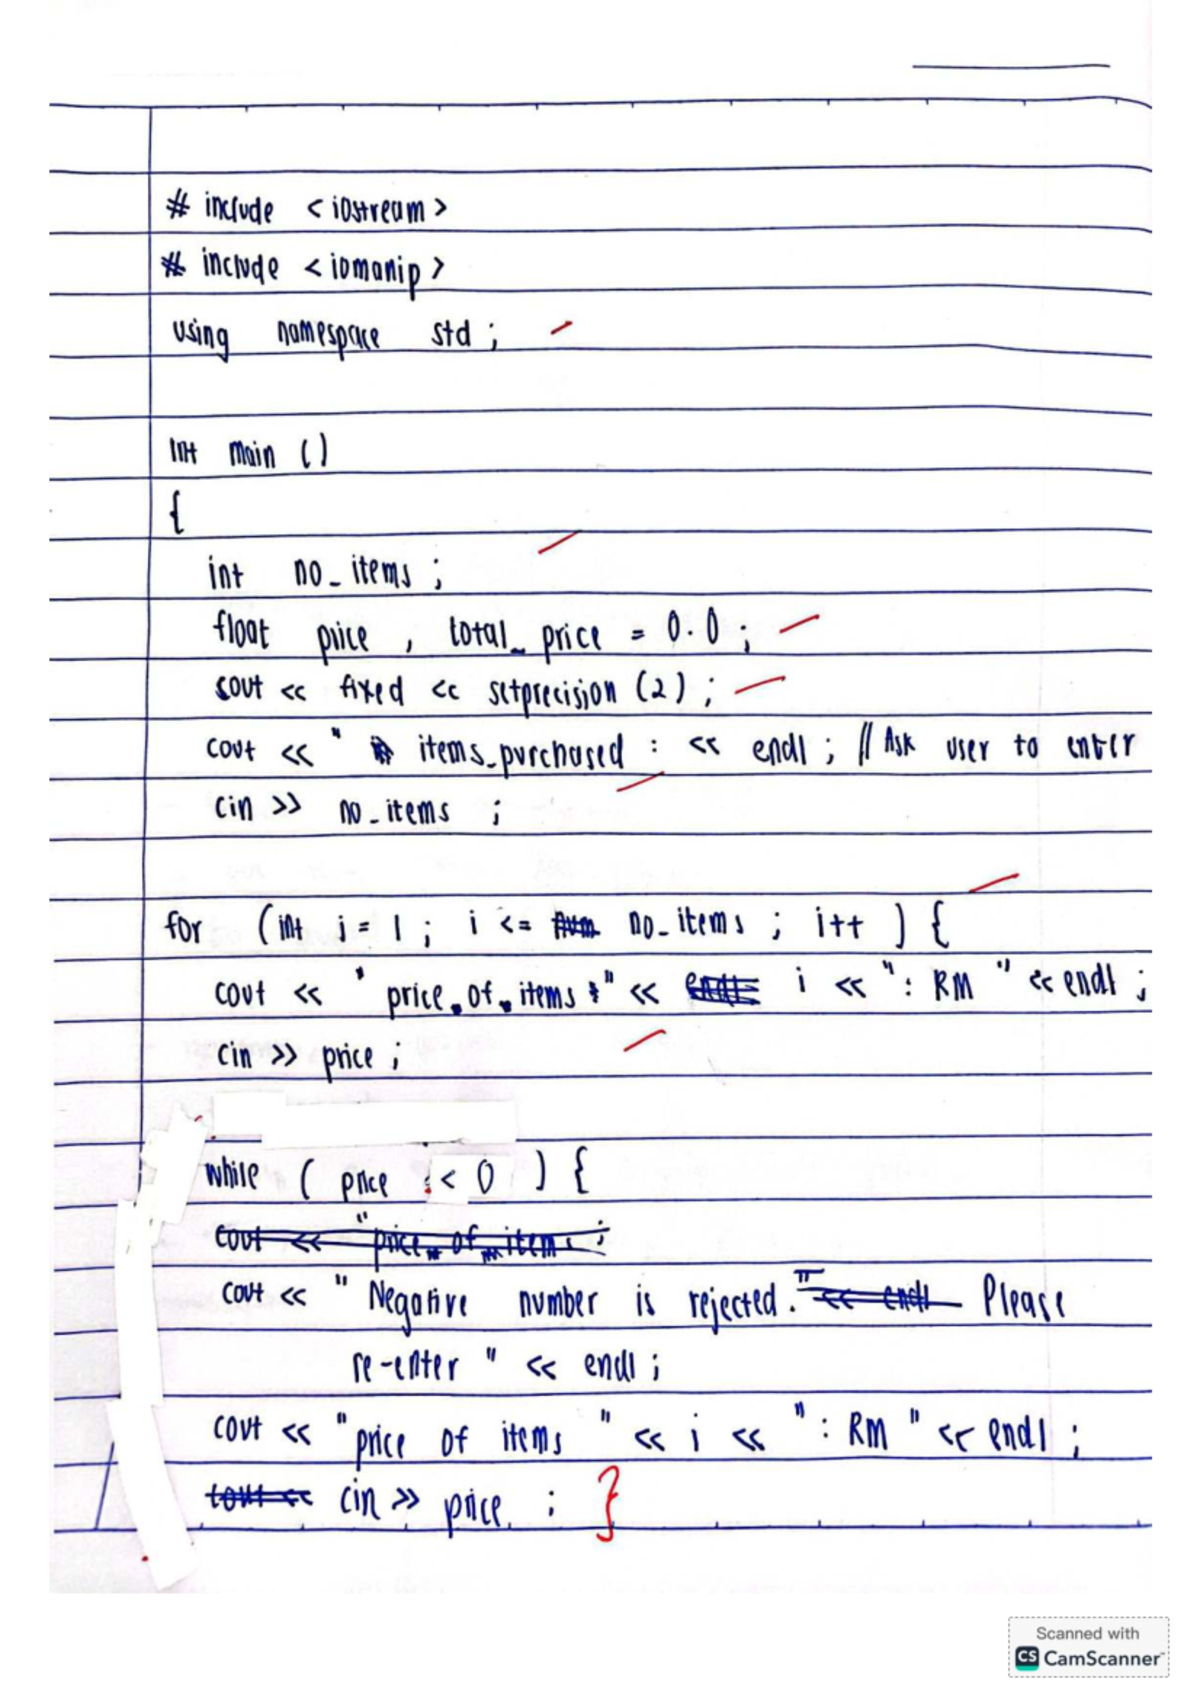 # include <iostream>
# include <iomanip>
using namespace std ;
int main ()
{
int no_items ;
float price , total_price = 0.0 ;
cout << fixed << setprecision (2) ;
cout << " items_purchased : << endl ; // Ask user to enter
cin >> no_items ;
for (int i = 1 ; i <= num no_items ; i++ ) {
cout << " price_of_items " << endl i << ": RM " << endl ;
cin >> price ;
while ( price < 0 ) {
cout << "price_of_items ;
cout << " Negative number is rejected. " << endl Please
re-enter " << endl ;
cout << "price of items " << i << ": RM " << endl ;
cout << cin >> price ; }
Scanned with
CS CamScanner